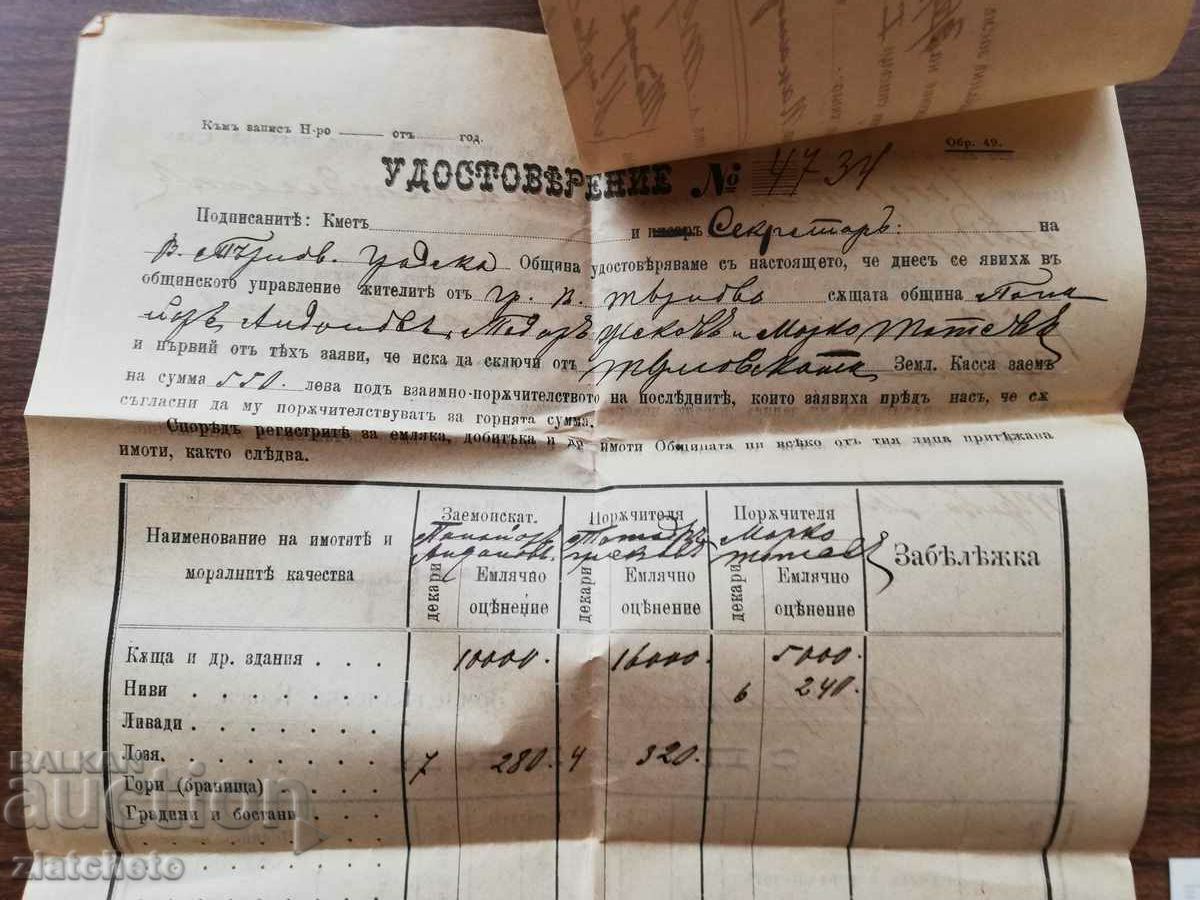 Къмъ записъ Н-ро ——— отъ ........ год.
Обр. 49.
УДОСТОВѢРЕНИЕ № 4734
Подписанитѣ: Кметъ и писаръ Секретаръ: на
В. Търнов. Градска Община удостовѣряваме съ настоящето, че днесъ се явихѫ въ
общинското управление жителитѣ отъ гр. В. Търновъ сѫщата община
Андоновъ, Тодоръ и Марко
и първий отъ тѣхъ заяви, че иска да сключи отъ Търновската Земл. Касса заемъ
на сумма 550. лева подъ взаимно-порѫчителството на последнитѣ, които заявиха прѣдъ насъ, че сѫ
съгласни да му порѫчителствуватъ за горнята сумма.
Споредъ регистритѣ за емляка, добитъка и др. имоти Общината ни всѣко отъ тия лица притѣжава
имоти, както слѣдва.
Наименование на имотятѣ и моралнитѣ качества
Заемоискат.
Андоновъ
декари
Емлячно оцѣнение
Порѫчителя
декари
Емлячно оцѣнение
Порѫчителя
Марко
декари
Емлячно оцѣнение
ЗАБѢЛѢЖКА
Кѫща и др. здания . . . 10000. 16000. 5000.
Ниви . . . . . . . . 6 240.
Ливади . . . . . . .
Лозя. . . . . . . . 7 280. 4 320.
Гори (бранища) . . .
Градини и бостани . .
BALKAN
auction
zlatcheto